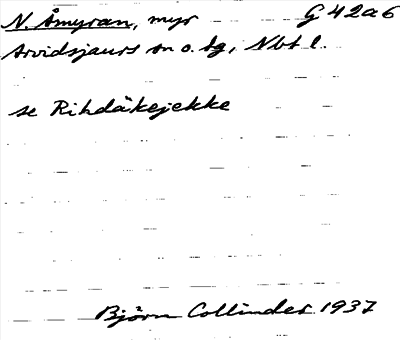 N. Åmyran, myr G 42a6
Arvidsjaurs sn o. tg, Nbt l.
se Rihdåkejekke
Björn Collinder 1937